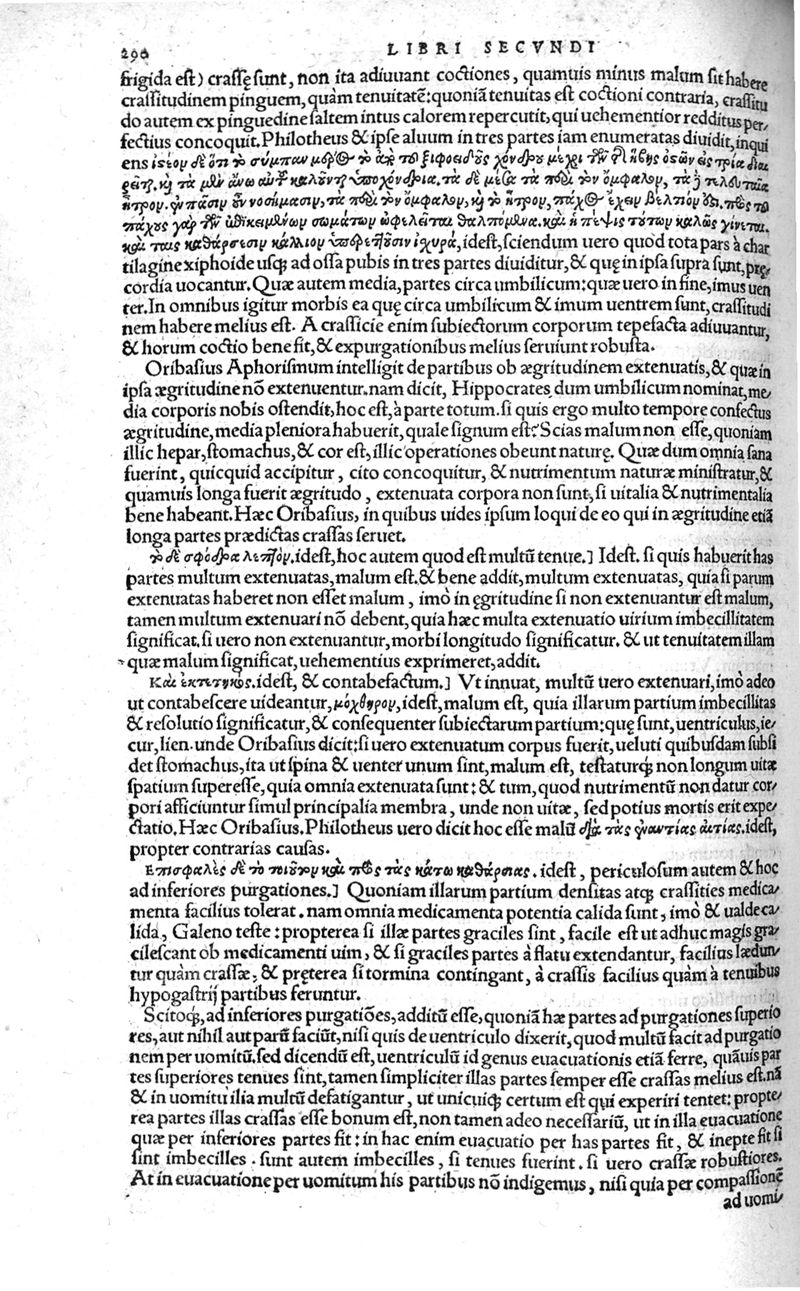 290 LIBRI SECVNDI
frigida est) crassę sunt, non ita adiuuant coctiones, quamuis minus malum sit habere
crassitudinem pinguem, quàm tenuitatẽ: quoniã tenuitas est coctioni contraria, crassitu
do autem ex pinguedine saltem intus calorem repercutit, qui uehementior redditus per/
fectius concoquit. Philotheus & ipse aluum in tres partes iam enumeratas diuidit, inqui
ens ἰστέον δὲ ὅτι τὸ σύμπαν μόριον τὸ ἀπὸ τοῦ ξιφοειδοῦς χόνδρου μέχρι τῶν τῆς ἥβης ὀστῶν εἰς τρία διαι
ρεῖται, καὶ τὰ μὲν ἄνω αὐτοῦ καλοῦνται ὑποχόνδρια. τὰ δὲ μέσα τὰ περὶ τὸν ὀμφαλον, τὰ δὲ τελευταῖα
ἦτρον. ἐν πᾶσιν οὖν νοσήμασιν, τὰ περὶ τὸν ὀμφαλον, καὶ τὸ ἦτρον, πάχος ἔχειν βέλτιον ὅτι. πρὸς τοῦ
πάχους γὰρ τῶν ὑποκειμένων σωμάτων ὠφελεῖται θαλπόμενα. καὶ ἡ πέψις τούτων καλῶς γίνεται.
καὶ ταις καθάρσεσιν κάλλιον ὑπηρετοῦσιν ἰσχυρά, idest, sciendum uero quòd tota pars à char
tilagine xiphoide usq; ad ossa pubis in tres partes diuiditur, & quę in ipsa supra sunt, pręcordia
cordia uocantur. Quæ autem media, partes circa umbilicum: quæ uero in fine, imus uen
ter. In omnibus igitur morbis ea quę circa umbilicum & imum uentrem sunt, crassitudi
nem habere melius est. A crassicie enim subiectorum corporum tepefacta adiuuantur,
& horum coctio bene fit, & expurgationibus melius seruiunt robusta.
Oribasius Aphorismum intelligit de partibus ob ægritudinem extenuatis, & quæ in
ipsa ægritudine nõ extenuentur. nam dicit, Hippocrates dum umbilicum nominat, me/
dia corporis nobis ostendit, hoc est, à parte totum. si quis ergo multo tempore confectus
ægritudine, media pleniora habuerit, quale signum est? Scias malum non esse, quoniam
illic hepar, stomachus, & cor est, illic operationes obeunt naturę. Quæ dum omnia sana
fuerint, quicquid accipitur, cito concoquitur, & nutrimentum naturæ ministratur, &
quamuis longa fuerit ægritudo, extenuata corpora non sunt, si uitalia & nutrimentalia
bene habeant. Hæc Oribasius, in quibus uides ipsum loqui de eo qui in ægritudine etiã
longa partes prædictas crassas seruet.
τὸ δὲ σφόδρα λεπτὸν. idest, hoc autem quod est multũ tenue.] Idest. si quis habuerit has
partes multum extenuatas, malum est. & bene addit, multum extenuatas, quia si parum
extenuatas haberet non esset malum, imò in ęgritudine si non extenuantur est malum,
tamen multum extenuari nõ debent, quia hæc multa extenuatio uirium imbecillitatem
significat. si uero non extenuantur, morbi longitudo significatur. & ut tenuitatem illam
quæ malum significat, uehementius exprimeret, addit.
Και ἐκτετηκὸς. idest, & contabefactum.] Vt innuat, multũ uero extenuari, imò adeo
ut contabescere uideantur, μοχθηρον, idest, malum est, quia illarum partium imbecillitas
& resolutio significatur, & consequenter subiectarum partium: quę sunt, uentriculus, ie/
cur, lien. unde Oribasius dicit: si uero extenuatum corpus fuerit, ueluti quibusdam subsi
det stomachus, ita ut spina & uenter unum sint, malum est, testaturq; non longum uitæ
spatium superesse, quia omnia extenuata sunt: & tum, quod nutrimentũ non datur cor/
pori afficiuntur simul principalia membra, unde non uitæ, sed potius mortis erit expe/
ctatio. Hæc Oribasius. Philotheus uero dicit hoc esse malũ διὰ τὰς ἐναντίας αἰτίας. idest,
propter contrarias causas.
Επισφαλὲς δὲ τὸ τοιοῦτον καὶ πρὸς τὰς κάτω καθάρσιας. idest, periculosum autem & hoc
ad inferiores purgationes.] Quoniam illarum partium densitas atq; crassities medica/
menta facilius tolerat. nam omnia medicamenta potentia calida sunt, imò & ualde ca/
lida, Galeno teste: propterea si illæ partes graciles sint, facile est ut adhuc magis gra/
cilescant ob medicamenti uim, & si graciles partes à flatu extendantur, facilius lædun/
tur quàm crassæ, & pręterea si tormina contingant, à crassis facilius quàm à tenuibus
hypogastrij partibus feruntur.
Scitoq;, ad inferiores purgatiões, additũ esse, quoniã hæ partes ad purgationes superio
res, aut nihil aut parũ faciũt, nisi quis de uentriculo dixerit, quod multũ facit ad purgatio
nem per uomitũ, sed dicendũ est, uentriculũ id genus euacuationis etiã ferre, quãuis par
tes superiores tenues sint, tamen simpliciter illas partes semper esse crassas melius est. nã
& in uomitu ilia multũ defatigantur, ut unicuiq; certum est qui experiri tentet: propte/
rea partes illas crassas esse bonum est, non tamen adeo necessariũ, ut in illa euacuatione
quæ per inferiores partes fit: in hac enim euacuatio per has partes fit, & inepte fit si
sint imbecilles. sunt autem imbecilles, si tenues fuerint. si uero crassæ robustiores.
At in euacuatione per uomitum his partibus nõ indigemus, nisi quia per compassionẽ
ad uomi/